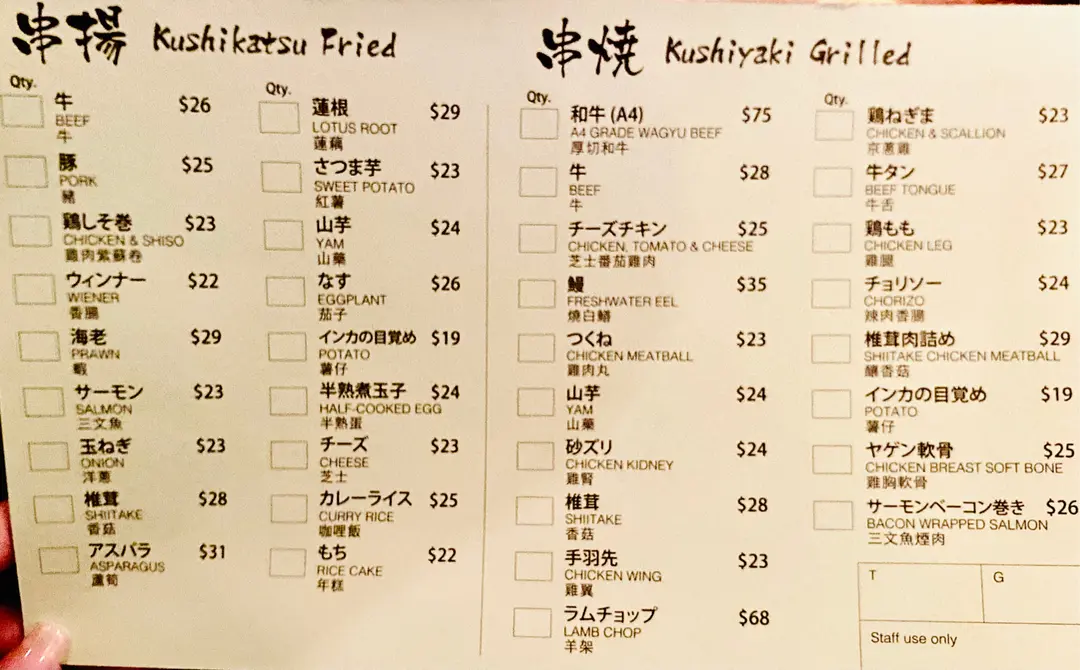 串揚 Kushikatsu Fried
Qty.
牛 $26
BEEF
牛
豚 $25
PORK
豬
鶏しそ巻 $23
CHICKEN & SHISO
雞肉紫蘇卷
ウィンナー $22
WIENER
香腸
海老 $29
PRAWN
蝦
サーモン $23
SALMON
三文魚
玉ねぎ $23
ONION
洋蔥
椎茸 $28
SHIITAKE
香菇
アスパラ $31
ASPARAGUS
蘆筍
Qty.
蓮根 $29
LOTUS ROOT
蓮藕
さつま芋 $23
SWEET POTATO
紅薯
山芋 $24
YAM
山藥
なす $26
EGGPLANT
茄子
インカの目覚め $19
POTATO
薯仔
半熟煮玉子 $24
HALF-COOKED EGG
半熟蛋
チーズ $23
CHEESE
芝士
カレーライス $25
CURRY RICE
咖哩飯
もち $22
RICE CAKE
年糕
串焼 Kushiyaki Grilled
Qty.
和牛 (A4) $75
A4 GRADE WAGYU BEEF
厚切和牛
牛 $28
BEEF
牛
チーズチキン $25
CHICKEN, TOMATO & CHEESE
芝士番茄雞肉
鰻 $35
FRESHWATER EEL
燒白鱔
つくね $23
CHICKEN MEATBALL
雞肉丸
山芋 $24
YAM
山藥
砂ズリ $24
CHICKEN KIDNEY
雞腎
椎茸 $28
SHIITAKE
香菇
手羽先 $23
CHICKEN WING
雞翼
ラムチョップ $68
LAMB CHOP
羊架
Qty.
鶏ねぎま $23
CHICKEN & SCALLION
京蔥雞
牛タン $27
BEEF TONGUE
牛舌
鶏もも $23
CHICKEN LEG
雞腿
チョリソー $24
CHORIZO
辣肉香腸
椎茸肉詰め $29
SHIITAKE CHICKEN MEATBALL
釀香菇
インカの目覚め $19
POTATO
薯仔
ヤゲン軟骨 $25
CHICKEN BREAST SOFT BONE
雞胸軟骨
サーモンベーコン巻き $26
BACON WRAPPED SALMON
三文魚煙肉
T G
Staff use only